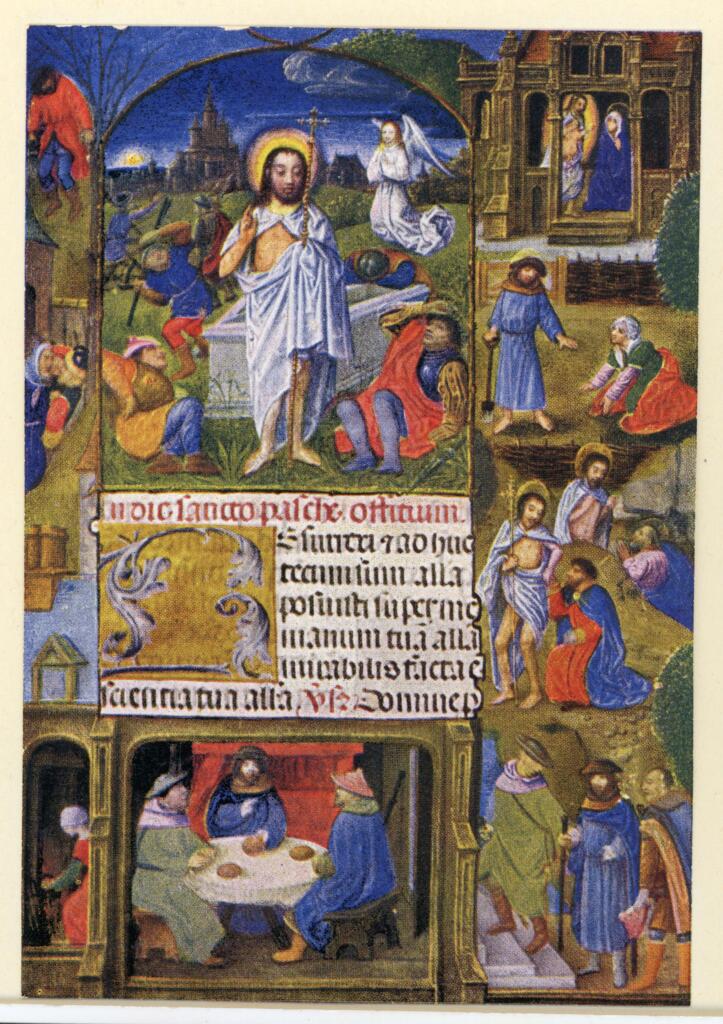 In die sancto pasche offitium.
REsurrexi ⁊ ad huc
tecum sum alla
posuisti super me
manum tuā alla
mirabilis facta ē
scientia tua alla Ps Domine p